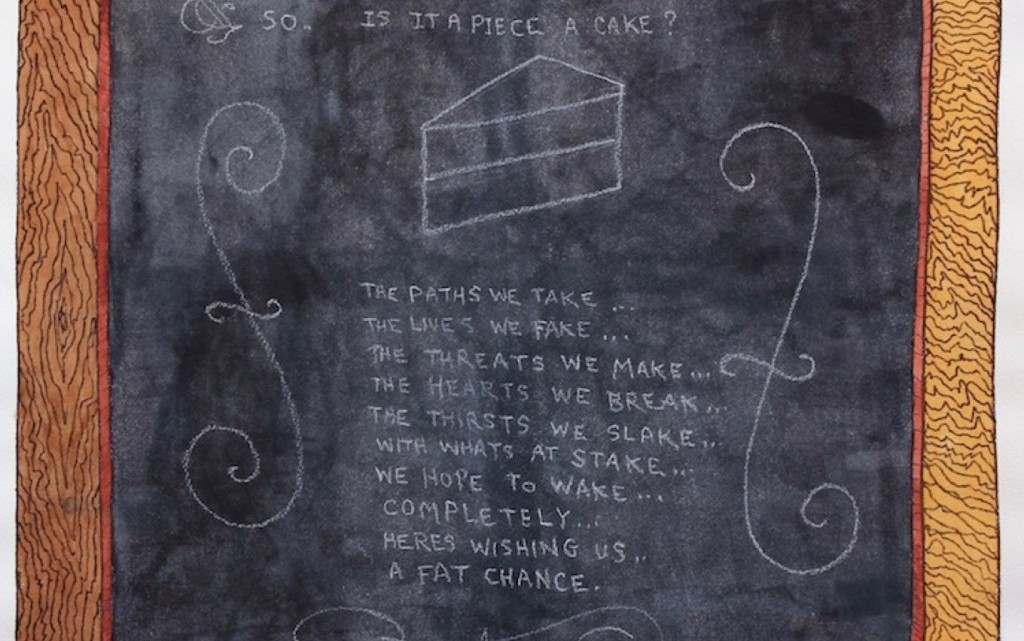 SO.. IS IT A PIECE A CAKE?
THE PATHS WE TAKE ...
THE LIVES WE FAKE ...
THE THREATS WE MAKE...
THE HEARTS WE BREAK...
THE THIRSTS WE SLAKE...
WITH WHATS AT STAKE...
WE HOPE TO WAKE...
COMPLETELY...
HERES WISHING US..
A FAT CHANCE.